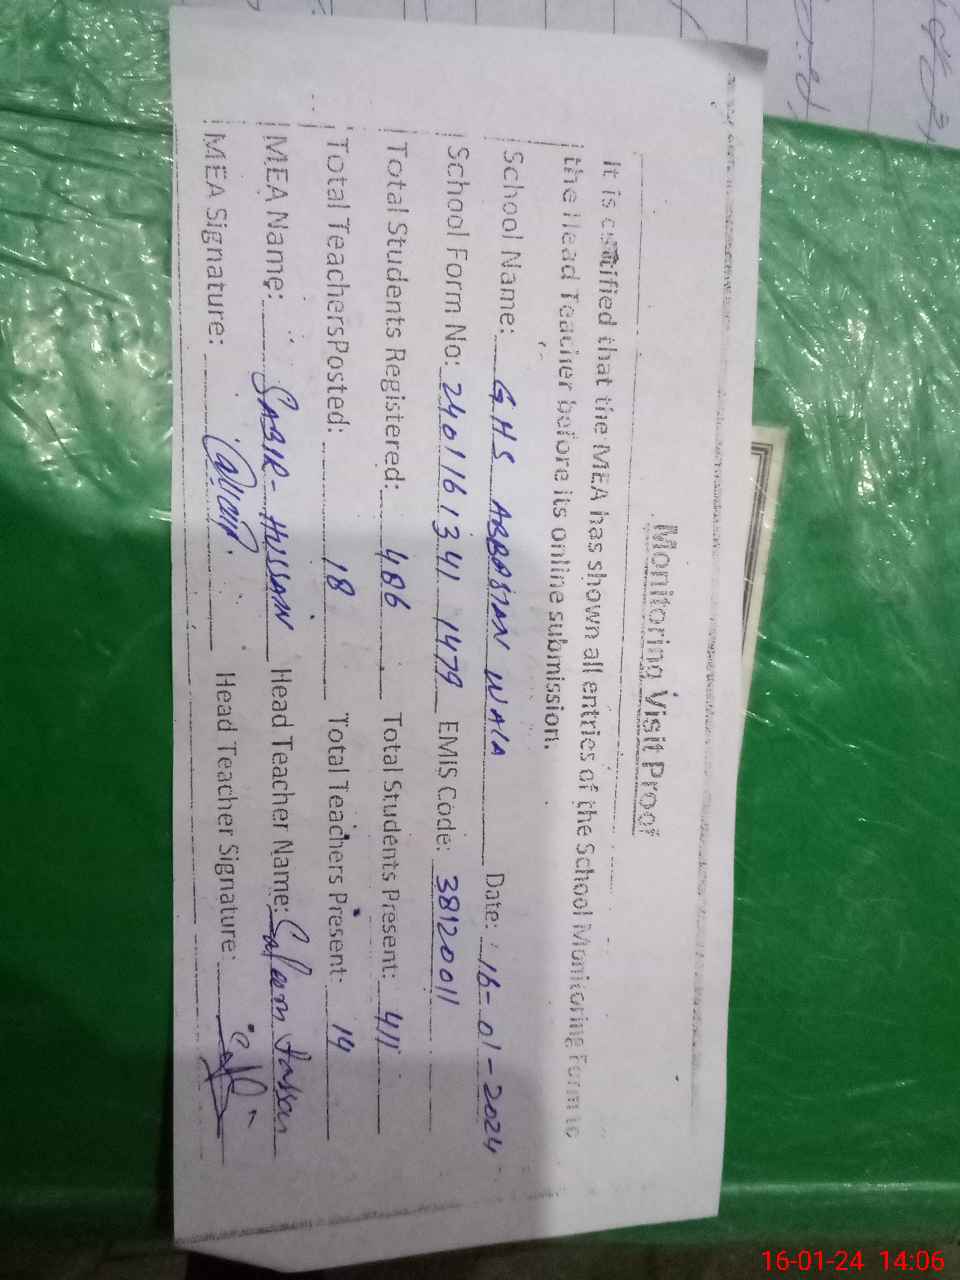 Monitoring Visit Proof
It is certified that the MEA has shown all entries of the School Monitoring Form to
the Head Teacher before its online submission.
School Name: G.H.S ABBASIAN WALA Date: 16-01-2024
School Form No: 24011613411479 EMIS Code: 38120011
Total Students Registered: 486 Total Students Present: 411
Total TeachersPosted: 18 Total Teachers Present: 14
MEA Name: SABIR-HUSSAIN Head Teacher Name: Saleem Hassan
MEA Signature: Head Teacher Signature:
16-01-24 14:06